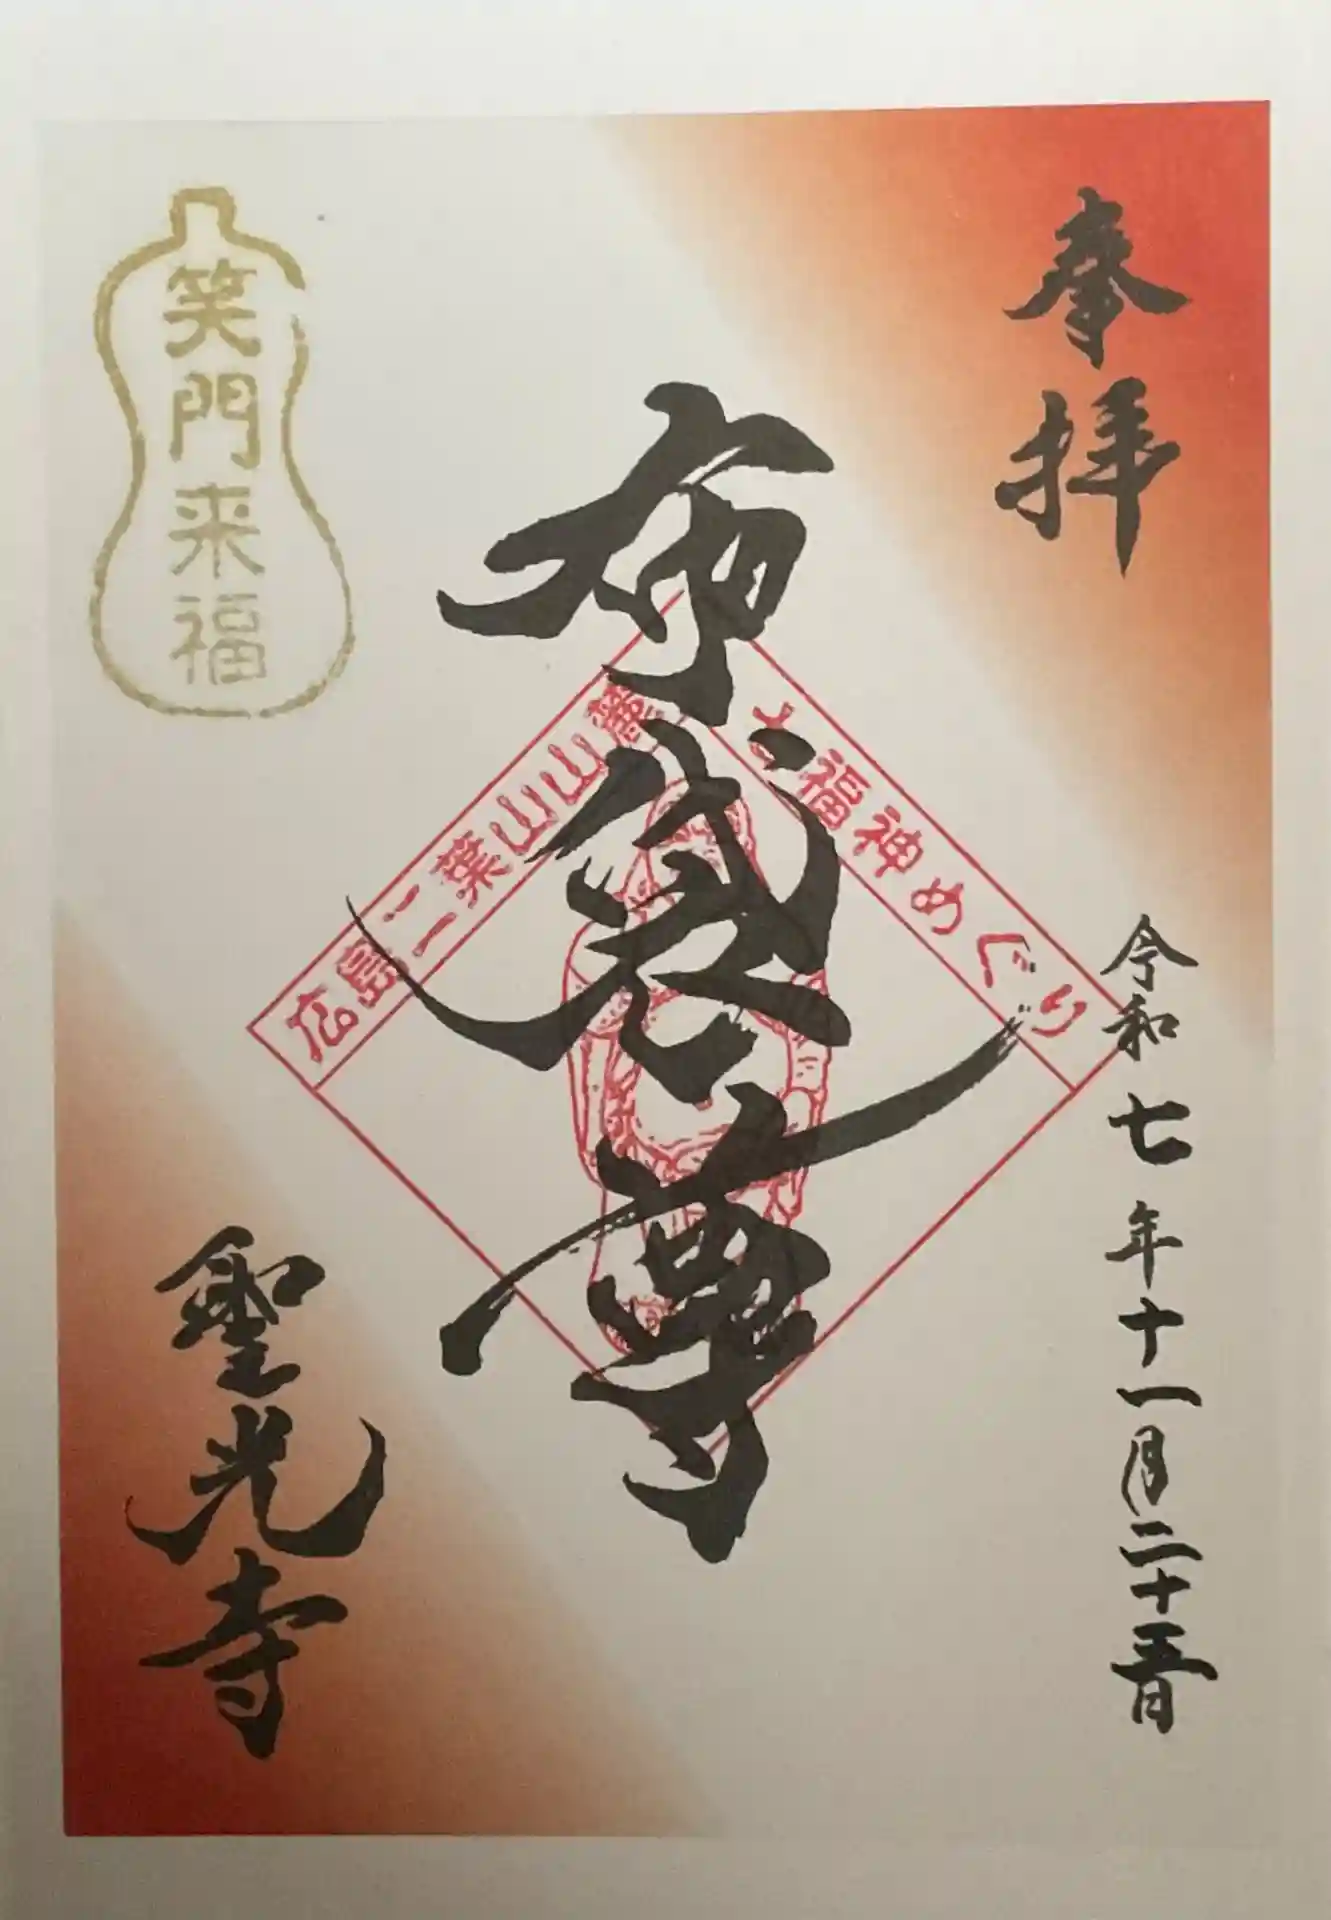 奉拝
令和七年十一月二十五日
布袋尊
広島二葉山山麓
七福神めぐり
笑門来福
聖光寺